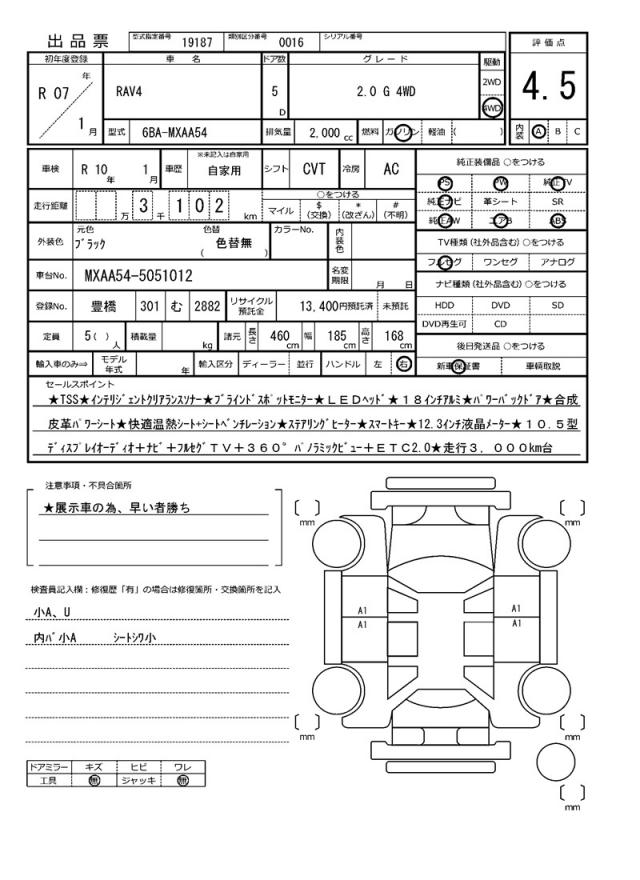 出品票 型式指定番号 19187 類別区分番号 0016 シリアル番号
評価点
初年度登録 車名 ドア数 グレード 駆動
R 07 年 RAV4 5 D 2.0 G 4WD 2WD 4WD
4.5
1 月 型式 6BA-MXAA54 排気量 2,000 cc 燃料 ガソリン 軽油 ( ) 内装 A B C
車検 R 10 年 1 月 車歴 ※未記入は自家用 自家用 シフト CVT 冷房 AC
純正装備品 ○をつける
PS PW 純正TV
走行距離 万 3 千 1 0 2 km ○をつける
マイル $ (交換) * (改ざん) # (不明)
純正ナビ 革シート SR
純正AW エアB ABS
外装色 元色 ブラック 色替 ( 色替無 ) カラーNo. 内装色
TV種類 (社外品含む) ○をつける
フルセグ ワンセグ アナログ
車台No. MXAA54-5051012 名変期限 月 日
ナビ種類 (社外品含む) ○をつける
登録No. 豊橋 301 む 2882 リサイクル預託金 13,400円預託済 未預託
HDD DVD SD
DVD再生可 CD
定員 5( ) 人 積載量 kg 諸元 長さ 460 cm 幅 185 cm 高さ 168 cm
後日発送品 ○をつける
輸入車のみ⇒ モデル年式 年 輸入区分 ディーラー 並行 ハンドル 左 右
新車保証書 車輌取説
セールスポイント
★TSS★インテリジェントクリアランスソナー★ブラインドスポットモニター★LEDヘッド★18インチアルミ★パワーバックドア★合成
皮革パワーシート★快適温熱シート+シートベンチレーション★ステアリングヒーター★スマートキー★12.3インチ液晶メーター★10.5型
ディスプレイオーディオ+ナビ+フルセグTV+360°パノラミックビュー+ETC2.0★走行3,000km台
注意事項・不具合箇所
★展示車の為、早い者勝ち
mm mm
検査員記入欄：修復歴「有」の場合は修復箇所・交換箇所を記入
小A、U
内バ小A シートシワ小
A1 A1
A1 A1
mm mm
ドアミラー キズ ヒビ ワレ
工具 無 ジャッキ 無
mm